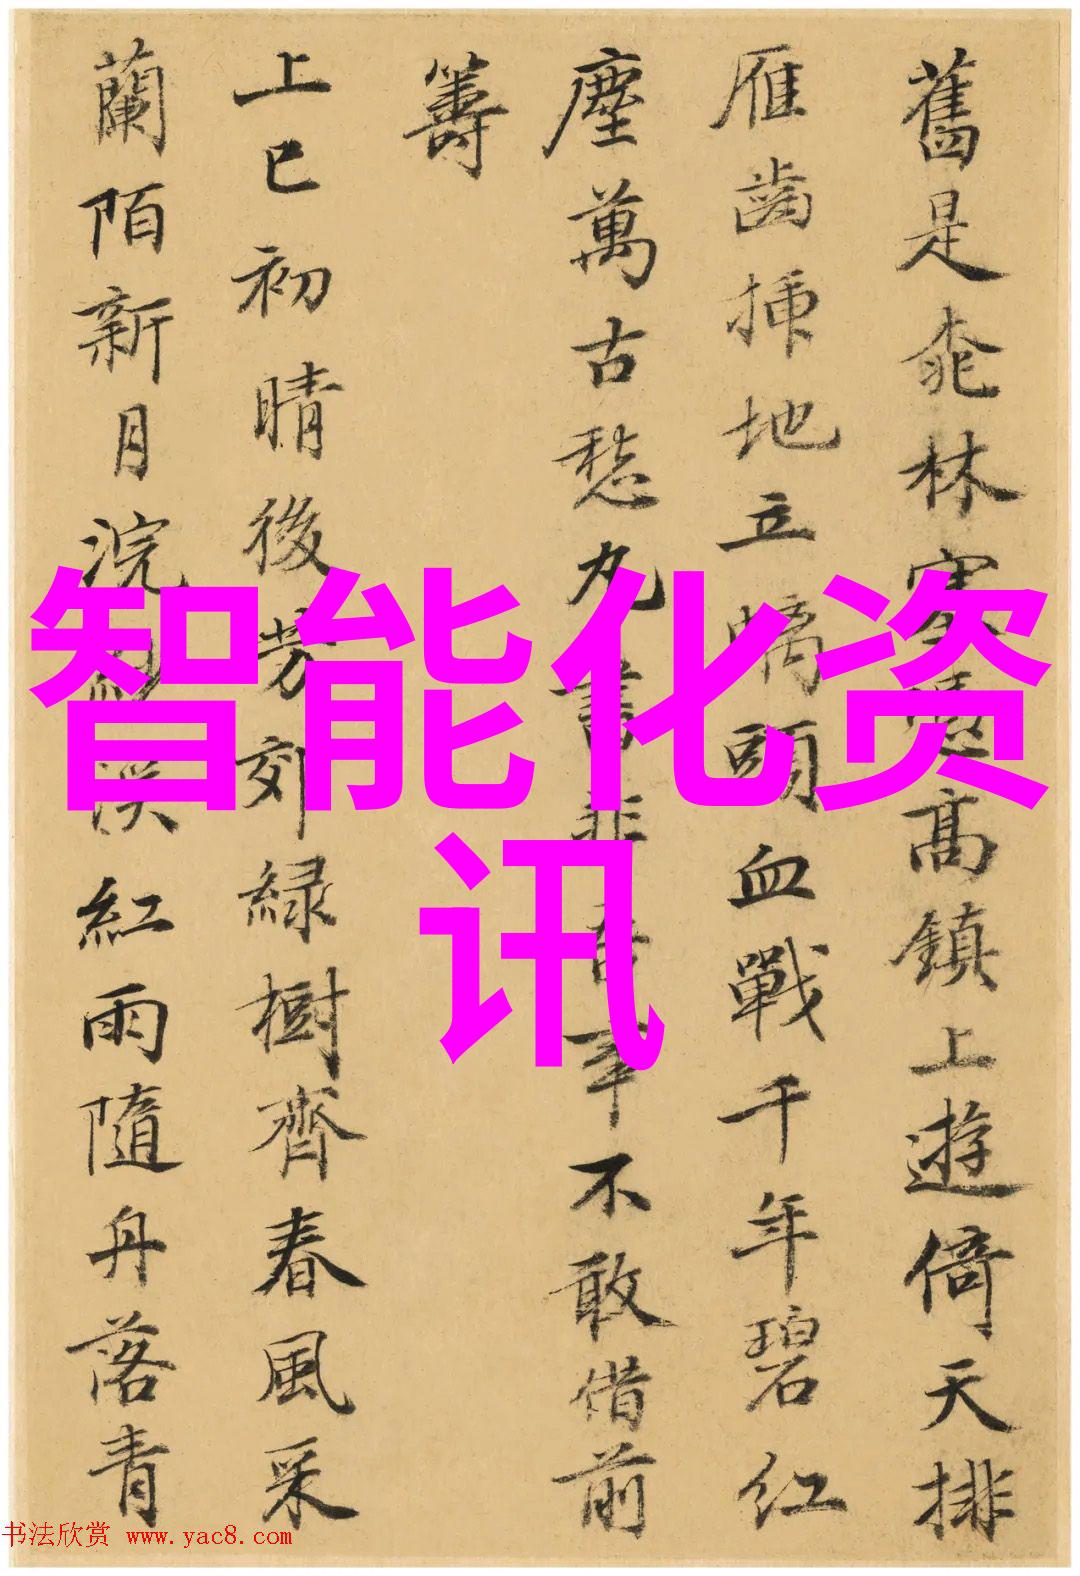 舊是桃林塞高鎮上遊倚天排
雁齒插地立螭頭血戰千年碧紅
塵萬古愁丸書非吾事不敢借前
籌
上巳初晴後芳郊綠樹齊春風采
蘭陌新月浣紗溪紅雨隨舟落青
智能化资
讯
书法欣赏 www.yac8.com